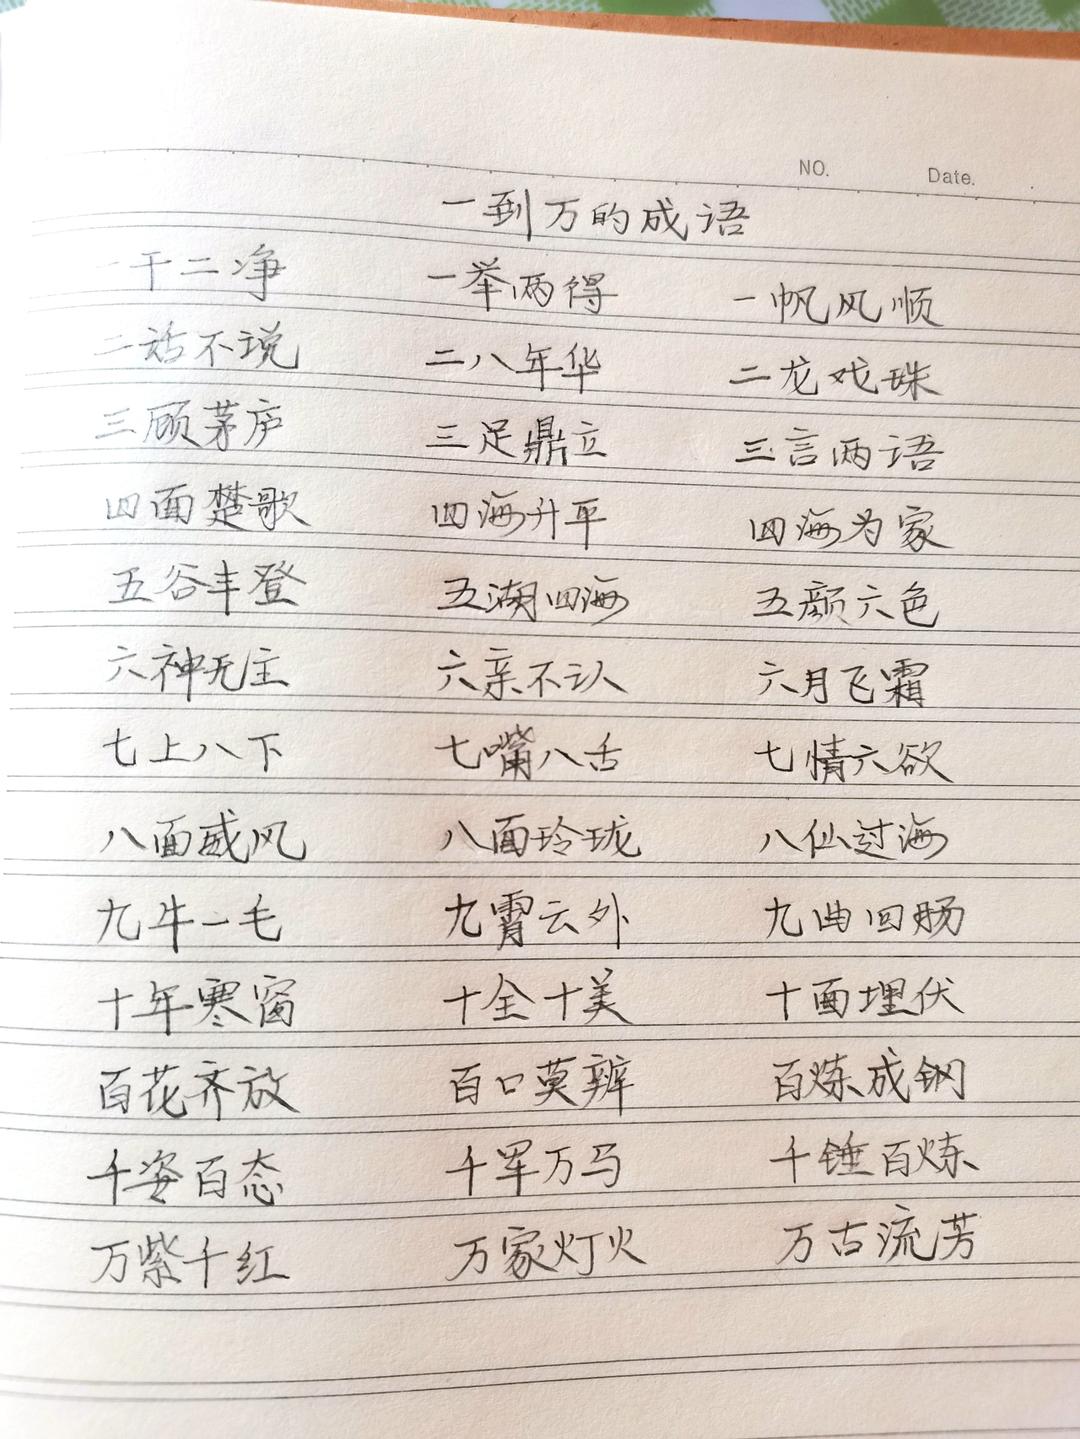 NO. Date.
一到万的成语
一干二净 一举两得 一帆风顺
二话不说 二八年华 二龙戏珠
三顾茅庐 三足鼎立 三言两语
四面楚歌 四海升平 四海为家
五谷丰登 五湖四海 五颜六色
六神无主 六亲不认 六月飞霜
七上八下 七嘴八舌 七情六欲
八面威风 八面玲珑 八仙过海
九牛一毛 九霄云外 九曲回肠
十年寒窗 十全十美 十面埋伏
百花齐放 百口莫辨 百炼成钢
千姿百态 千军万马 千锤百炼
万紫千红 万家灯火 万古流芳